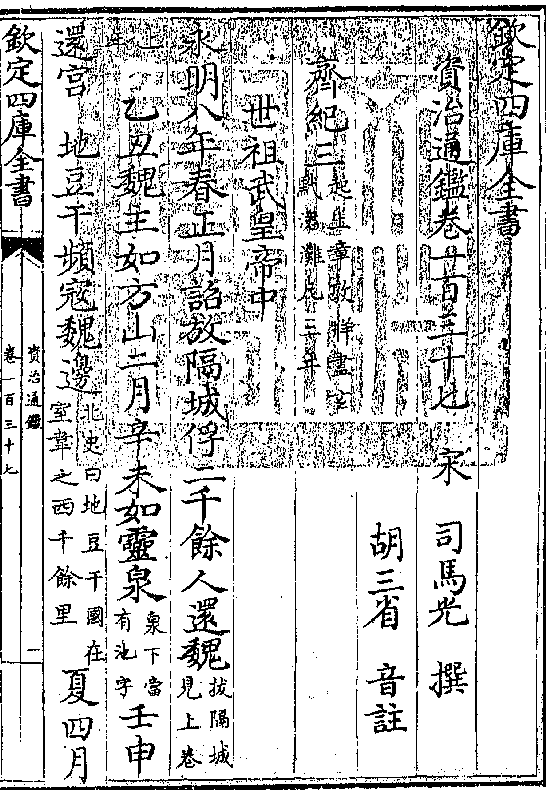 欽定四庫全書
資治通鑑卷一百三十七 宋 司馬光 撰
胡三省 音註
齊紀三 起上章敦牂盡玄
黓涒灘凡三年
世祖武皇帝中
永明八年春正月詔放隔城俘二千餘人還魏 拔隔城
見上卷
乙丑魏主如方山二月辛未如靈泉 泉下當
有池字 壬申
還宮 地豆干頻寇魏邊 北史曰地豆干國在
室韋之西千餘里 夏四月
欽定四庫全書
資治通鑑
卷一百三十七
一